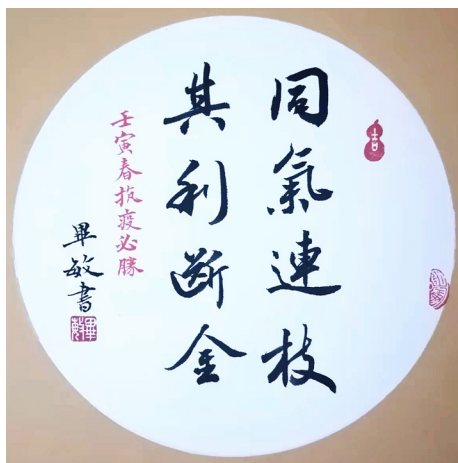 同氣連枝
其利斷金
壬寅春抗疫必勝
畢敏書
吉
畢敏